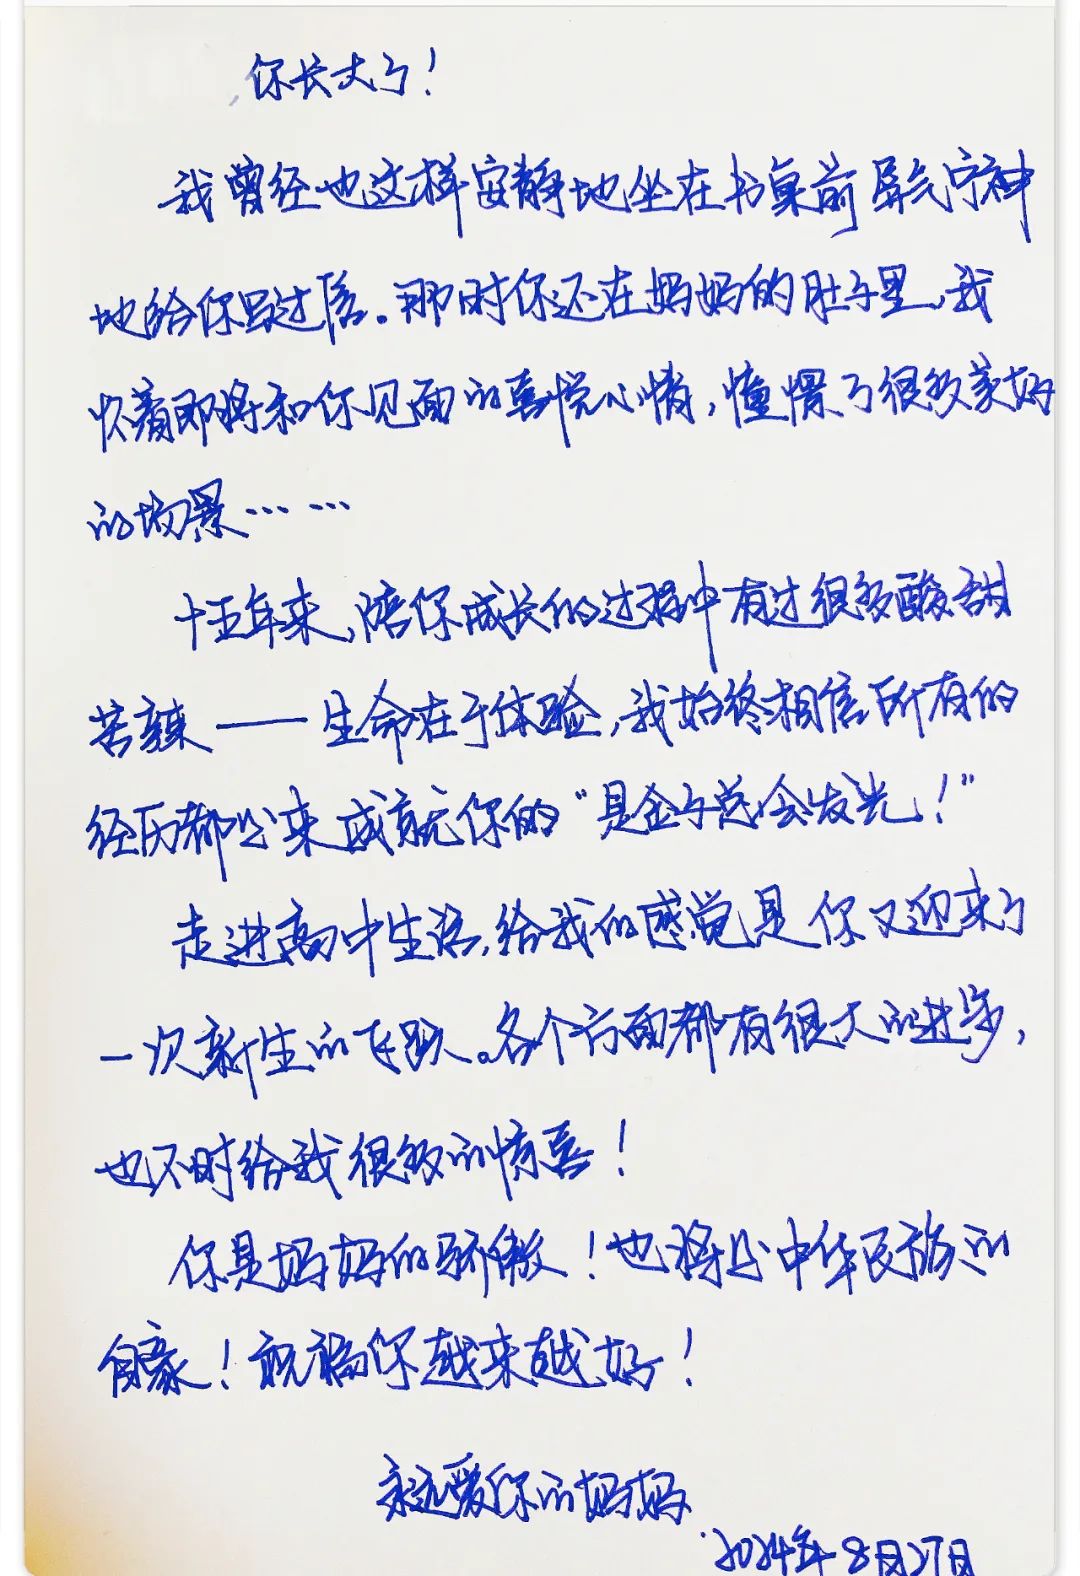 ，你长大了！
我曾经也这样安静地坐在书桌前屏气宁神
地给你写过信。那时你还在妈妈的肚子里，我
怀着即将和你见面的喜悦心情，憧憬了很多美好
的场景……
十五年来，陪你成长的过程中有过很多酸甜
苦辣——生命在于体验，我始终相信所有的
经历都会来成就你的“是金子总会发光！”
走进高中生活，给我的感觉是你又迎来了
一次新生的飞跃。各个方面都有很大的进步，
也不时给我很多的惊喜！
你是妈妈的骄傲！也将为中华民族的
自豪！祝福你越来越好！
永远爱你的妈妈
2024年8月27日